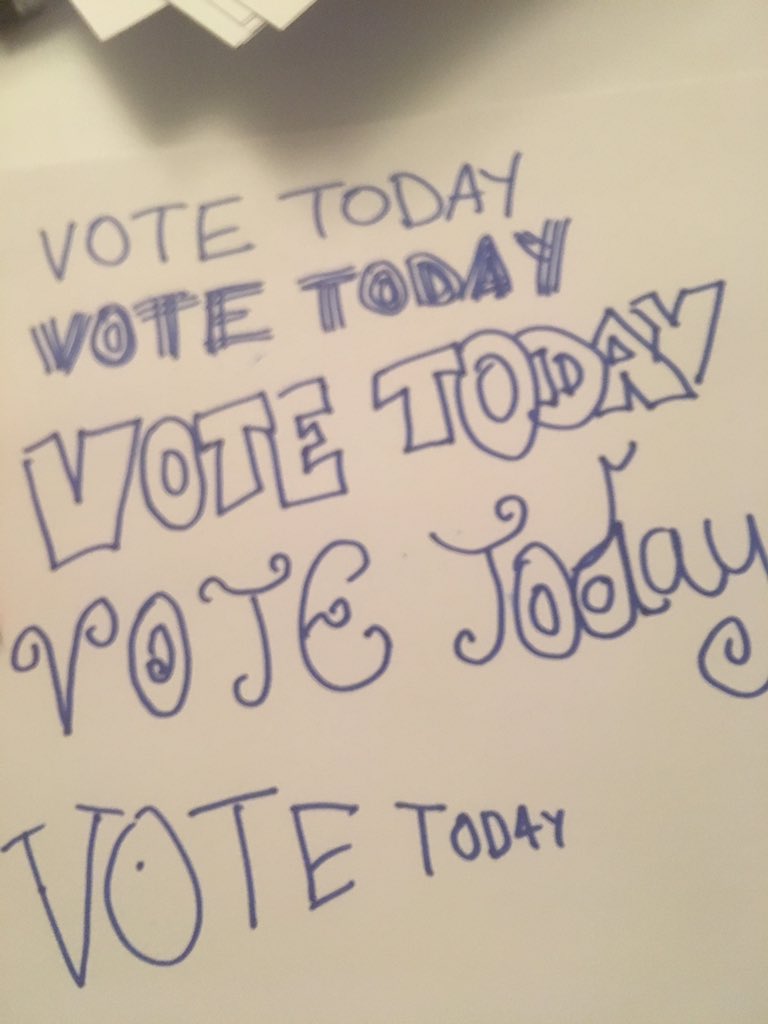 VOTE TODAY
VOTE TODAY
VOTE TODAY
VOTE Today
VOTE TODAY